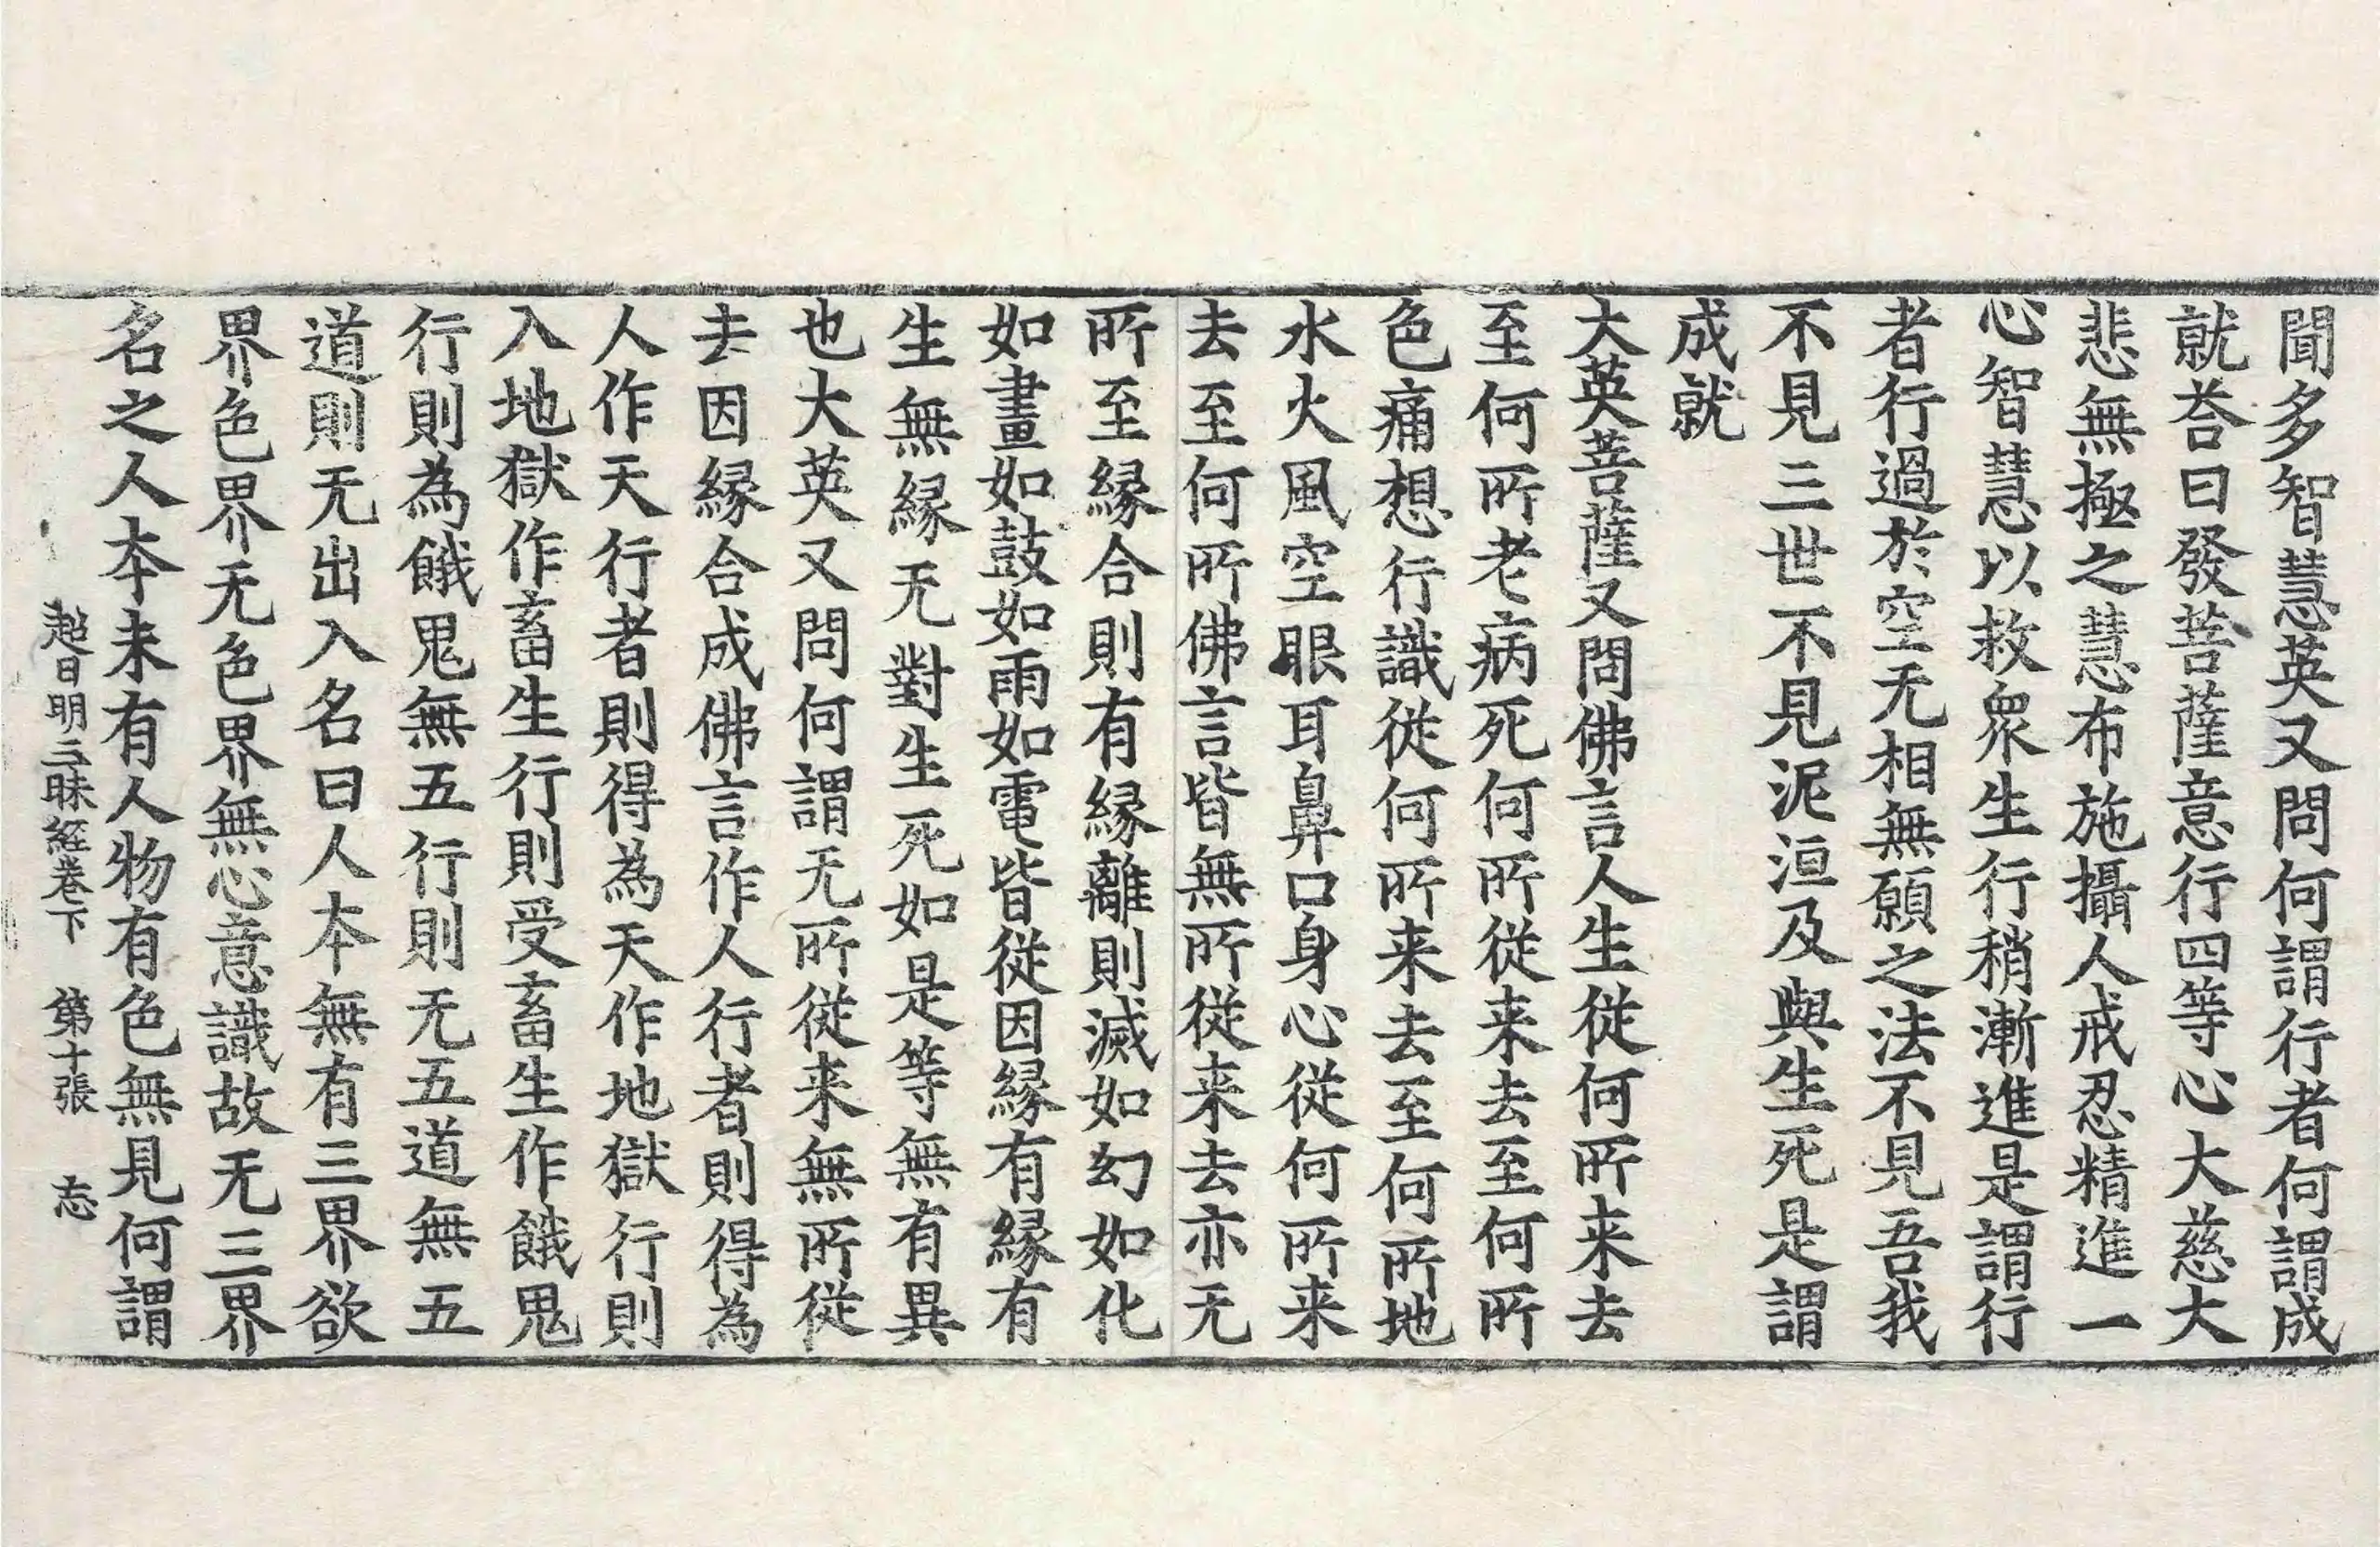 聞多智慧英又問何謂行者何謂成
就荅曰發菩薩意行四等心大慈大
悲無極之慧布施攝人戒忍精進一
心智慧以救衆生行稍漸進是謂行
者行過於空无相無願之法不見吾我
不見三世不見泥洹及與生死是謂
成就
大英菩薩又問佛言人生從何所来去
至何所老病死何所從来去至何所
色痛想行識從何所来去至何所地
水火風空眼耳鼻口身心從何所来
去至何所佛言皆無所從来去亦无
所至縁合則有縁離則滅如幻如化
如畫如鼓如雨如電皆從因縁有縁有
生無縁无對生死如是等無有異
也大英又問何謂无所從来無所從
去因縁合成佛言作人行者則得為
人作天行者則得為天作地獄行則
入地獄作畜生行則受畜生作餓鬼
行則為餓鬼無五行則无五道無五
道則无出入名曰人本無有三界欲
界色界无色界無心意識故无三界
名之人本未有人物有色無見何謂
超日明三昧經卷下 第十張 志